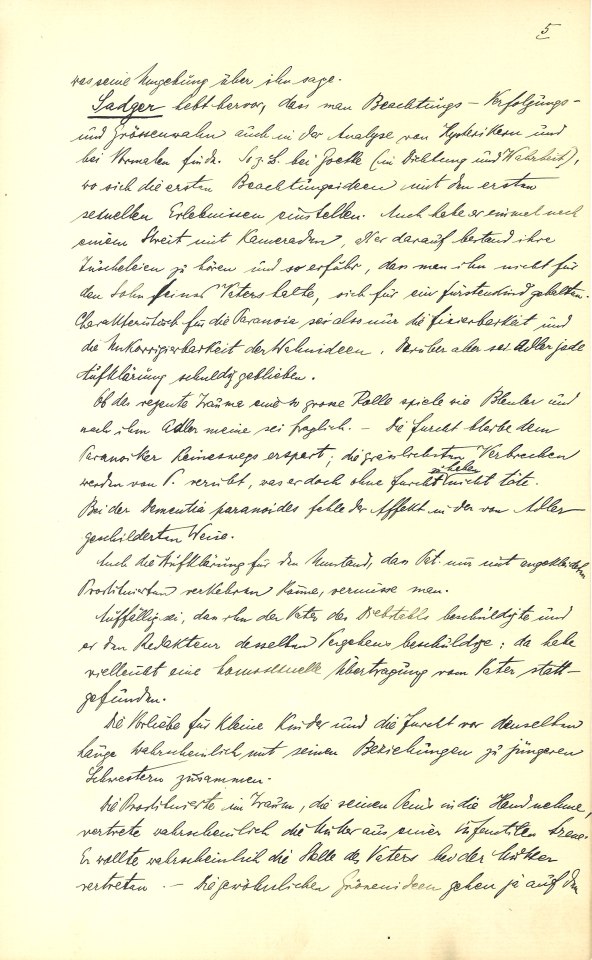 5
was seine Umgebung über ihn sage.
Sadger hebt hervor, dass man Beachtungs- Verfolgungs-
und Grössenwahn auch in der Analyse von Hysterikern und
bei Normalen finde. So z. B. bei Goethe (in Dichtung und Wahrheit),
wo sich die ersten Beachtungsideen mit den ersten
sexuellen Erlebnissen einstellen. Auch habe er einmal nach
einem Streit mit Kameraden, als er darauf bestand ihre
Tuscheleien zu hören und so erfuhr, dass man ihn nicht für
den Sohn seines Vaters halte, sich für ein Fürstenkind gehalten.
Charakteristisch für die Paranoia sei also nur die Fixierbarkeit und
die Unkorrigierbarkeit der Wahnideen. Darüber aber sei Adler jede
Aufklärung schuldig geblieben.
Ob der rezente Traum eine so grosse Rolle spiele wie Bleuler und
nach ihm Adler meine sei fraglich. - Die Furcht bleibe dem
Paranoiker keineswegs erspart; die grässlichsten Verbrechen
werden von P. verübt, was er doch ohne Furcht zu haben nicht täte.
Bei der Dementia paranoides fehle der Affekt in der von Adler
geschilderten Weise.
Auch die Aufklärung für den Umstand, dass Pat. nur mit angekleideten
Prostituierten verkehren könne, vermisse man.
Auffällig sei, dass ihn der Vater des Diebstahls beschuldigte und
er den Redakteur desselben Vergehens beschuldige; da habe
vielleicht eine homosexuelle Übertragung vom Vater statt-
gefunden.
Die Vorliebe für kleine Kinder und die Furcht vor denselben
hänge wahrscheinlich mit seinen Beziehungen zu jüngeren
Schwestern zusammen.
Die Prostituierte im Traum, die seinen Penis in die Hand nehme,
vertrete wahrscheinlich die Mutter aus einer infantilen Szene.
Er wollte wahrscheinlich die Stelle des Vaters bei der Mutter
vertreten. - Die gewöhnlichen Grössenideen gehen ja auf den